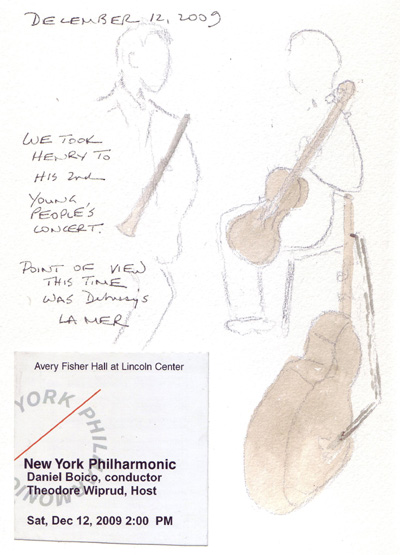 DECEMBER 12, 2009
WE TOOK
HENRY TO
HIS 2nd
YOUNG
PEOPLE'S
CONCERT.
POINT OF VIEW
THIS TIME
WAS Debussy's
LA MER
Avery Fisher Hall at Lincoln Center
YORK PHILHARMONIC
New York Philharmonic
Daniel Boico, conductor
Theodore Wiprud, Host
Sat, Dec 12, 2009 2:00 PM